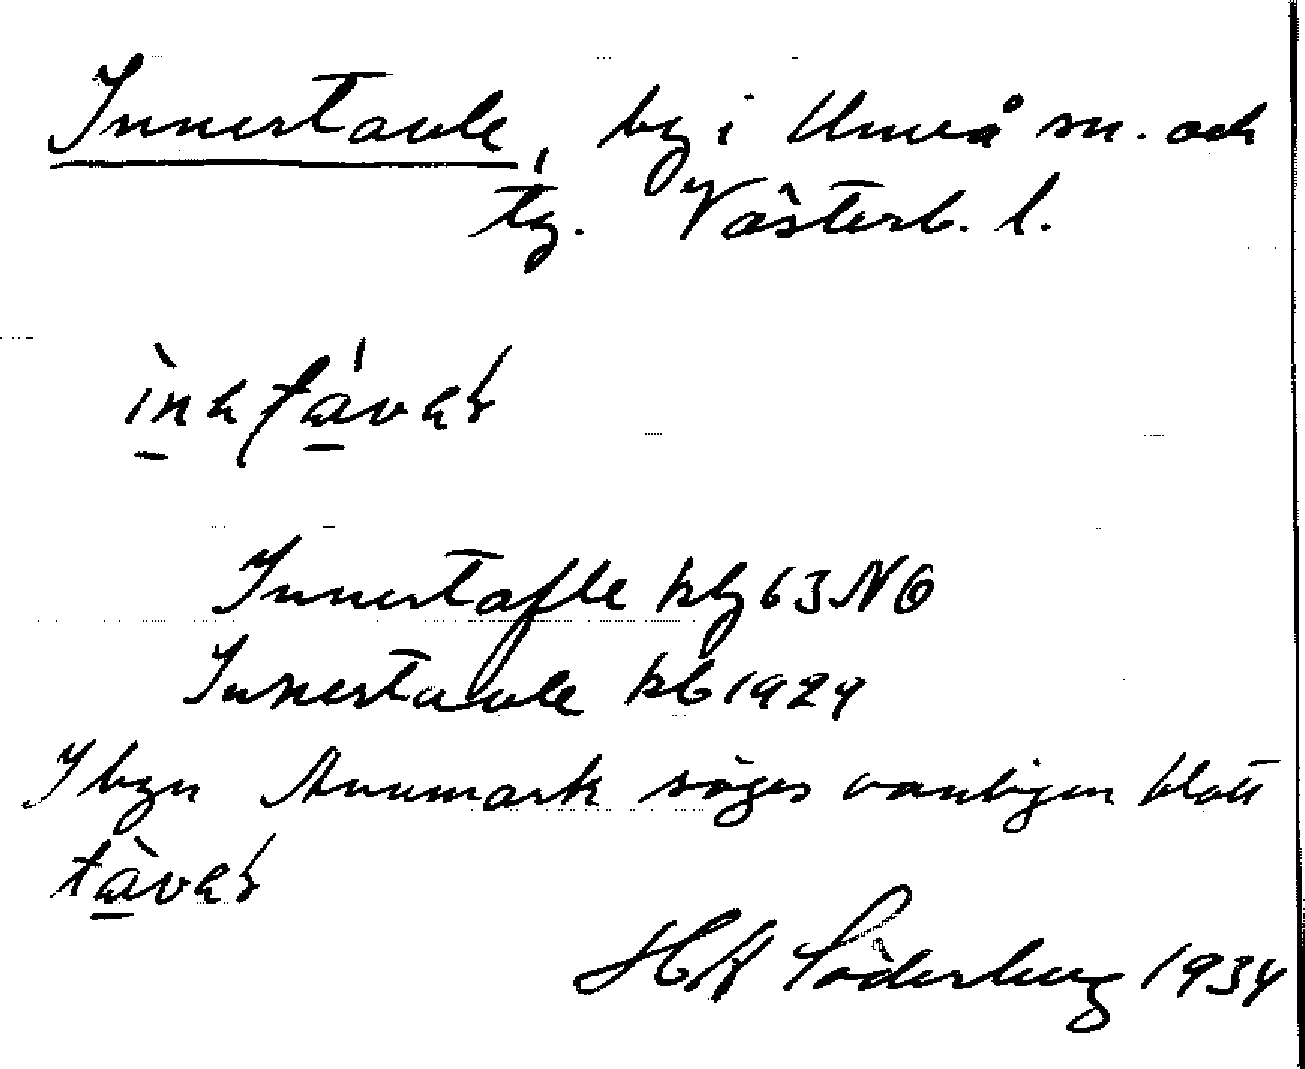 Innertavle, by i Umeå sn. och
tg. Västerb. l.
Innertafle kbg 63 NO
Innertavle kb 1924
I byn Anumark säges vanligen blott
HA Söderberg 1934